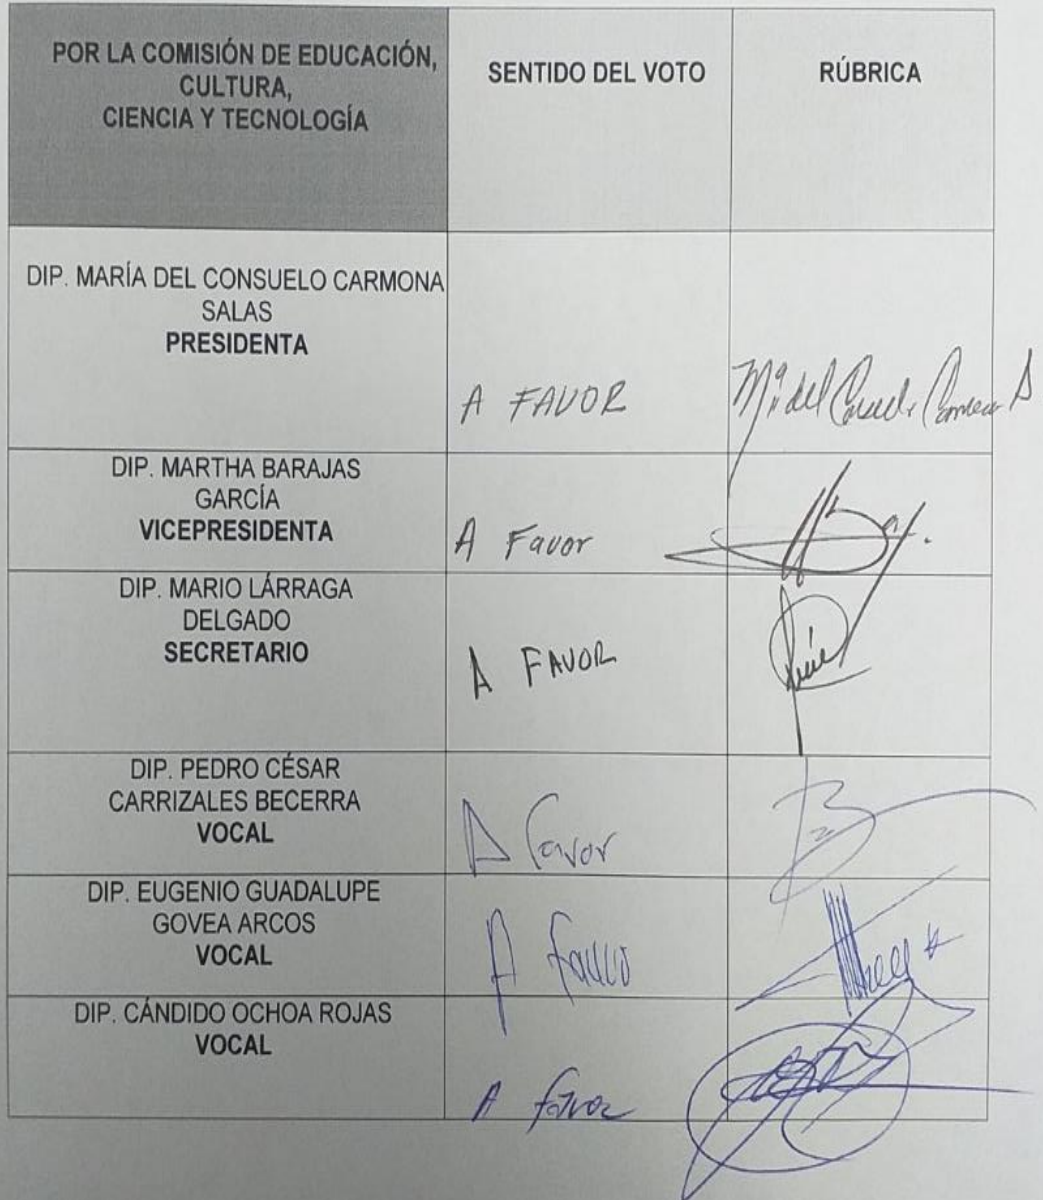 POR LA COMISIÓN DE EDUCACIÓN,
CULTURA,
CIENCIA Y TECNOLOGÍA
SENTIDO DEL VOTO
RÚBRICA
DIP. MARÍA DEL CONSUELO CARMONA
SALAS
PRESIDENTA
A FAVOR
DIP. MARTHA BARAJAS
GARCÍA
VICEPRESIDENTA
A Favor
DIP. MARIO LÁRRAGA
DELGADO
SECRETARIO
A FAVOR
DIP. PEDRO CÉSAR
CARRIZALES BECERRA
VOCAL
A favor
DIP. EUGENIO GUADALUPE
GOVEA ARCOS
VOCAL
A
DIP. CÁNDIDO OCHOA ROJAS
VOCAL
A favor